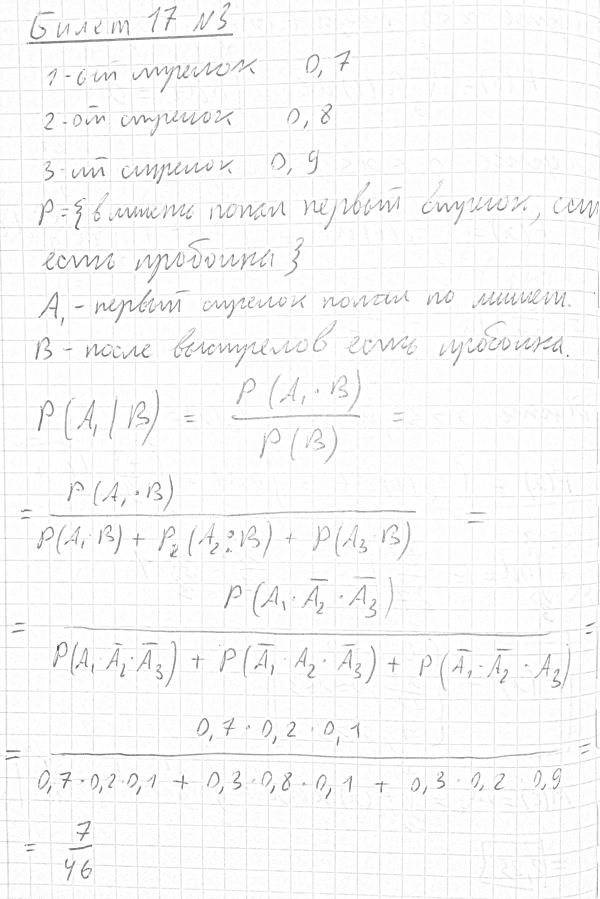 Билет 17 №3
1-ый стрелок 0,7
2-ой стрелок 0,8
3-ий стрелок 0,9
P={в мишень попал первый стрелок, если
есть пробоина}
A₁ - первый стрелок попал по мишени.
B - после выстрелов есть пробоина.
P(A₁/B) = P(A₁·B) / P(B) =
= P(A₁·B) / P(A₁·B) + P₂(A₂·B) + P(A₃·B) =
= P(A₁·A̅₂·A̅₃) / P(A₁·A̅₂·A̅₃) + P(A̅₁·A₂·A̅₃) + P(A̅₁·A̅₂·A₃) =
= 0,7·0,2·0,1 / 0,7·0,2·0,1 + 0,3·0,8·0,1 + 0,3·0,2·0,9 =
= 7/46